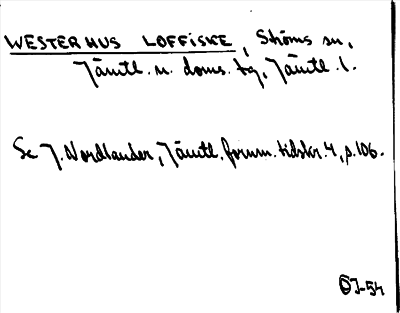 WESTERHUS LOFFISKE, Ströms sn,
Jämtl. n. doms. tg, Jämtl. l.
Se J. Nordlander, Jämtl. fornm. tidskr. 4, p. 106.
ÖJ-54